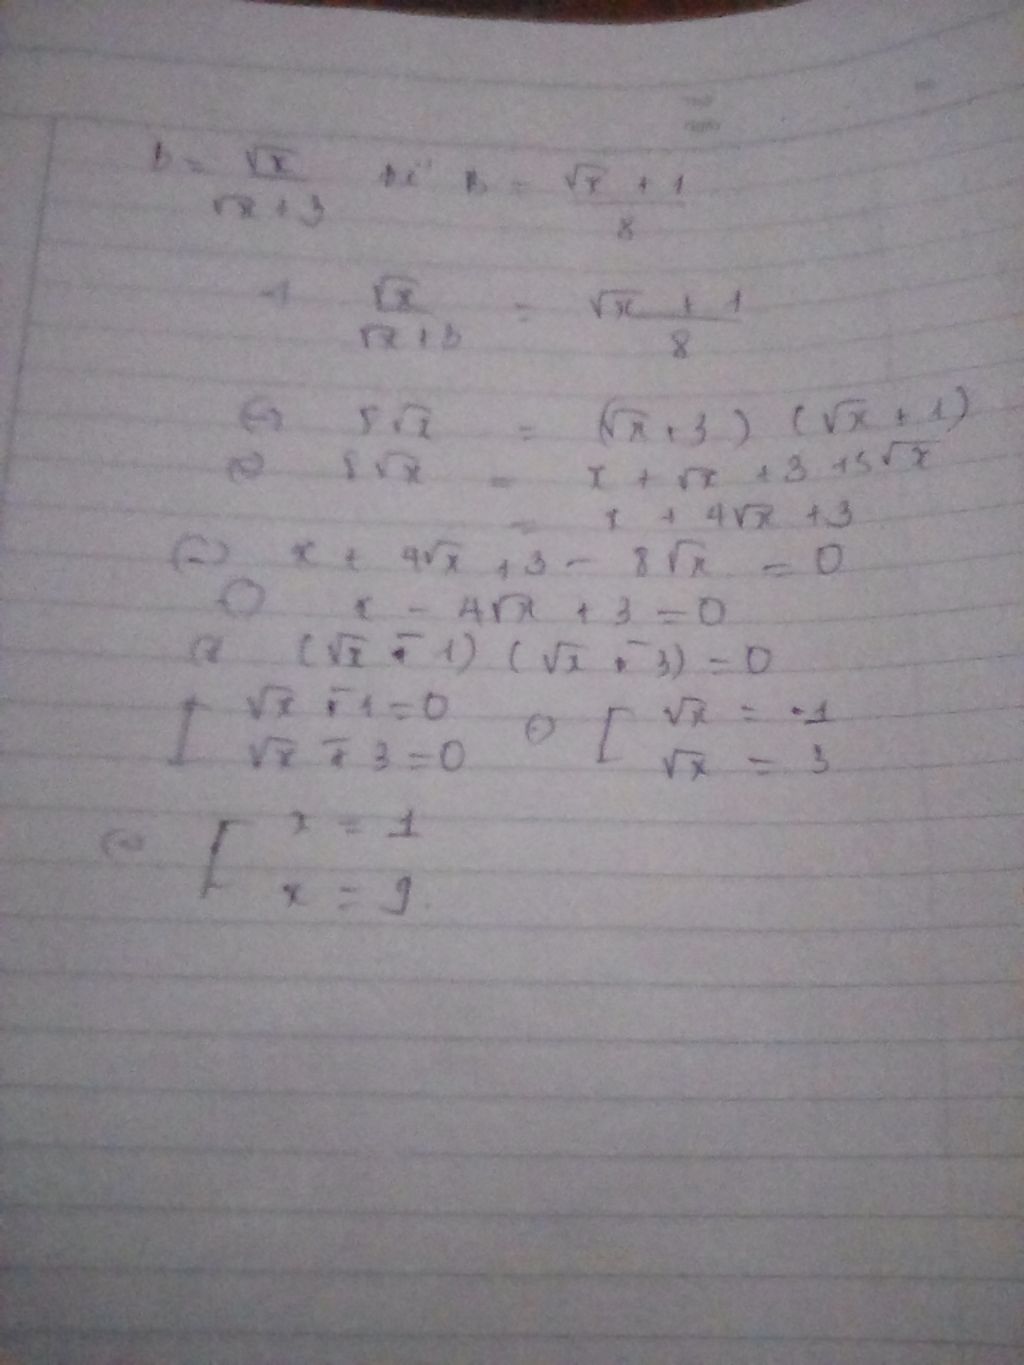 B = √x / √x + 3 để B = √x + 1 / 8
√x / √x + 3 = √x + 1 / 8
⇔ 8√x = (√x + 3) (√x + 1)
⇔ 8√x = x + √x + 3 + 3√x
= x + 4√x + 3
⇔ x + 4√x + 3 - 8√x = 0
⇔ x - 4√x + 3 = 0
⇔ (√x - 1) (√x - 3) = 0
[ √x - 1 = 0 ⇔ [ √x = 1
√x - 3 = 0 √x = 3
⇔ [ x = 1
x = 9